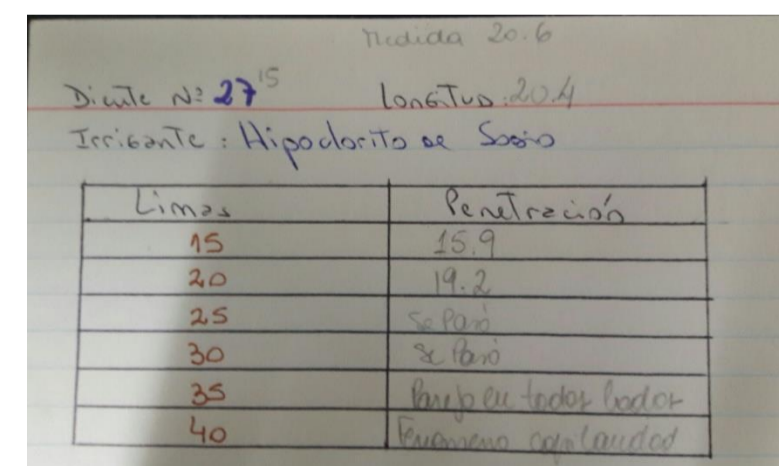 Medida 20.6
Diente Nº 27 15 Longitud: 20.4
Irrigante: Hipoclorito de Sodio
Limas Penetración
15 15.9
20 19.2
25 Se Paró
30 Se Paró
35 Parejo en todos lados
40 Fenomeno capilaridad